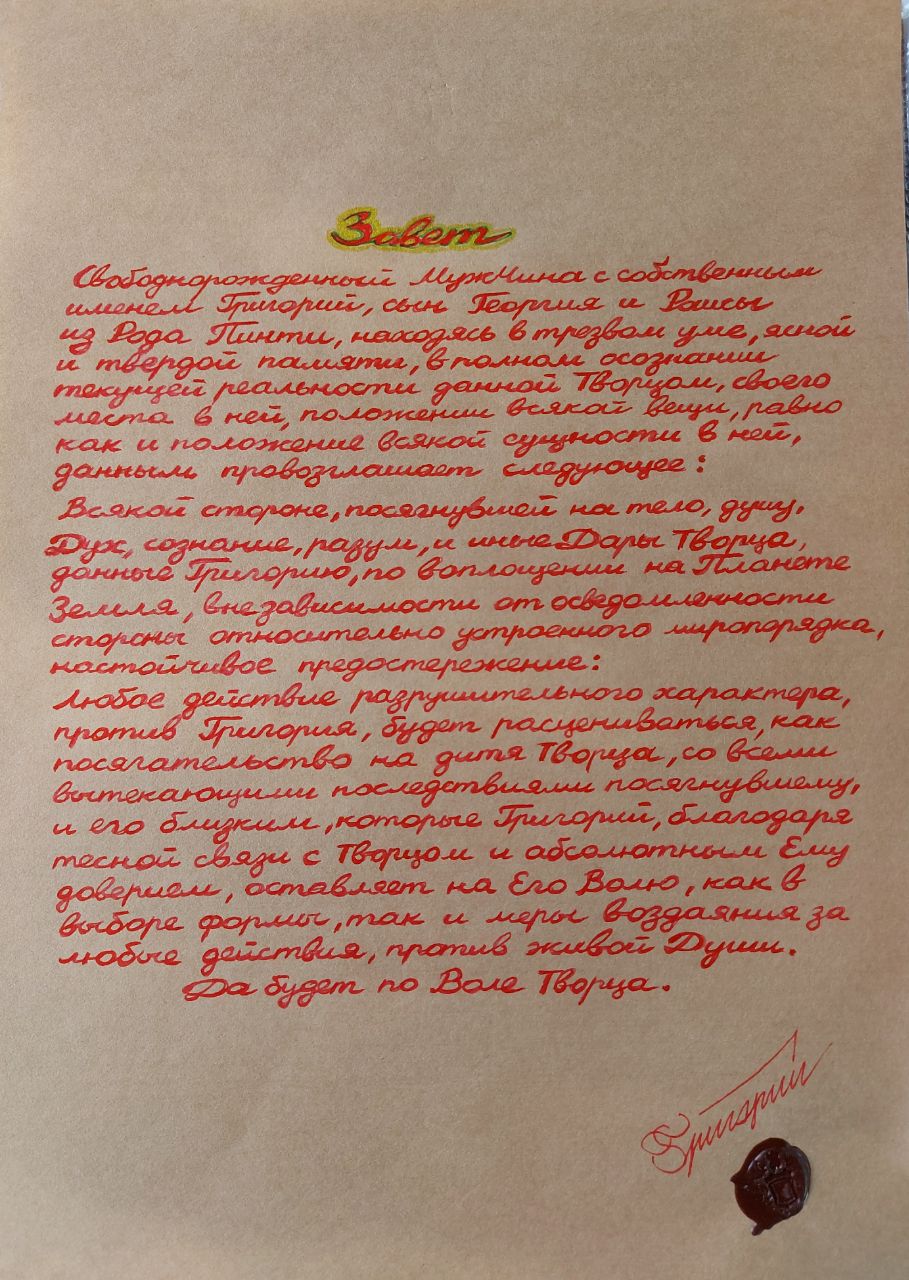 Завет
Свободнорожденный МужЧина с собственным
именем Григорий, сын Георгия и Раисы
из Рода Пинти, находясь в трезвом уме, ясной
и твердой памяти, в полном осознании
текущей реальности данной Творцом, своего
места в ней, положении всякой вещи, равно
как и положение всякой сущности в ней,
данным провозглашает следующее:
Всякой стороне, посягнувшей на тело, душу,
Дух, сознание, разум, и иные Дары Творца,
данные Григорию, по воплощении на Планете
Земля, вне зависимости от осведомленности
стороны относительно устроенного миропорядка,
настойчивое предостережение:
Любое действие разрушительного характера,
против Григория, будет расцениваться, как
посягательство на дитя Творца, со всеми
вытекающими последствиями посягнувшему,
и его близким, которые Григорий, благодаря
тесной связи с Творцом и абсолютным Ему
доверием, оставляет на Его Волю, как в
выборе формы, так и меры воздаяния за
любые действия, против живой Души.
Да будет по Воле Творца.
Григорий